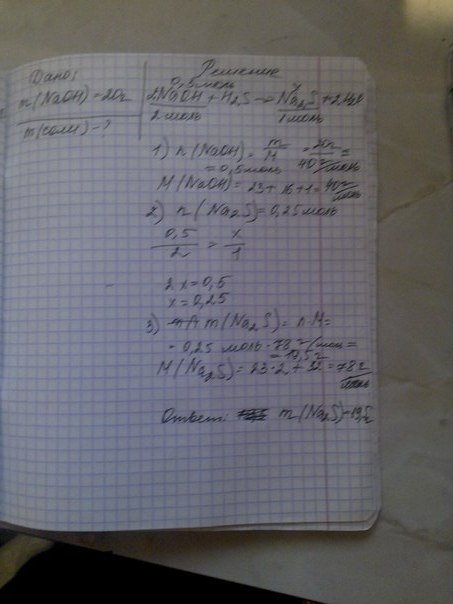 Дано:
m(NaOH)=20г
m(соли)-?
Решение
0,5моль x
2NaOH + H2S → Na2S + 2H2O
2 моль 1 моль
1) n(NaOH) = m/M = 20г/40г/моль =
= 0,5моль
M(NaOH) = 23+16+1=40г/моль
2) n(Na2S)=0,25моль
0,5/2 = x/1
2x=0,5
x=0,25
3) m(Na2S)= n·M=
= 0,25 моль·78г/моль=
=19,5г
M(Na2S)=23·2+32=78г/моль
Ответ: m(Na2S)=19,5г